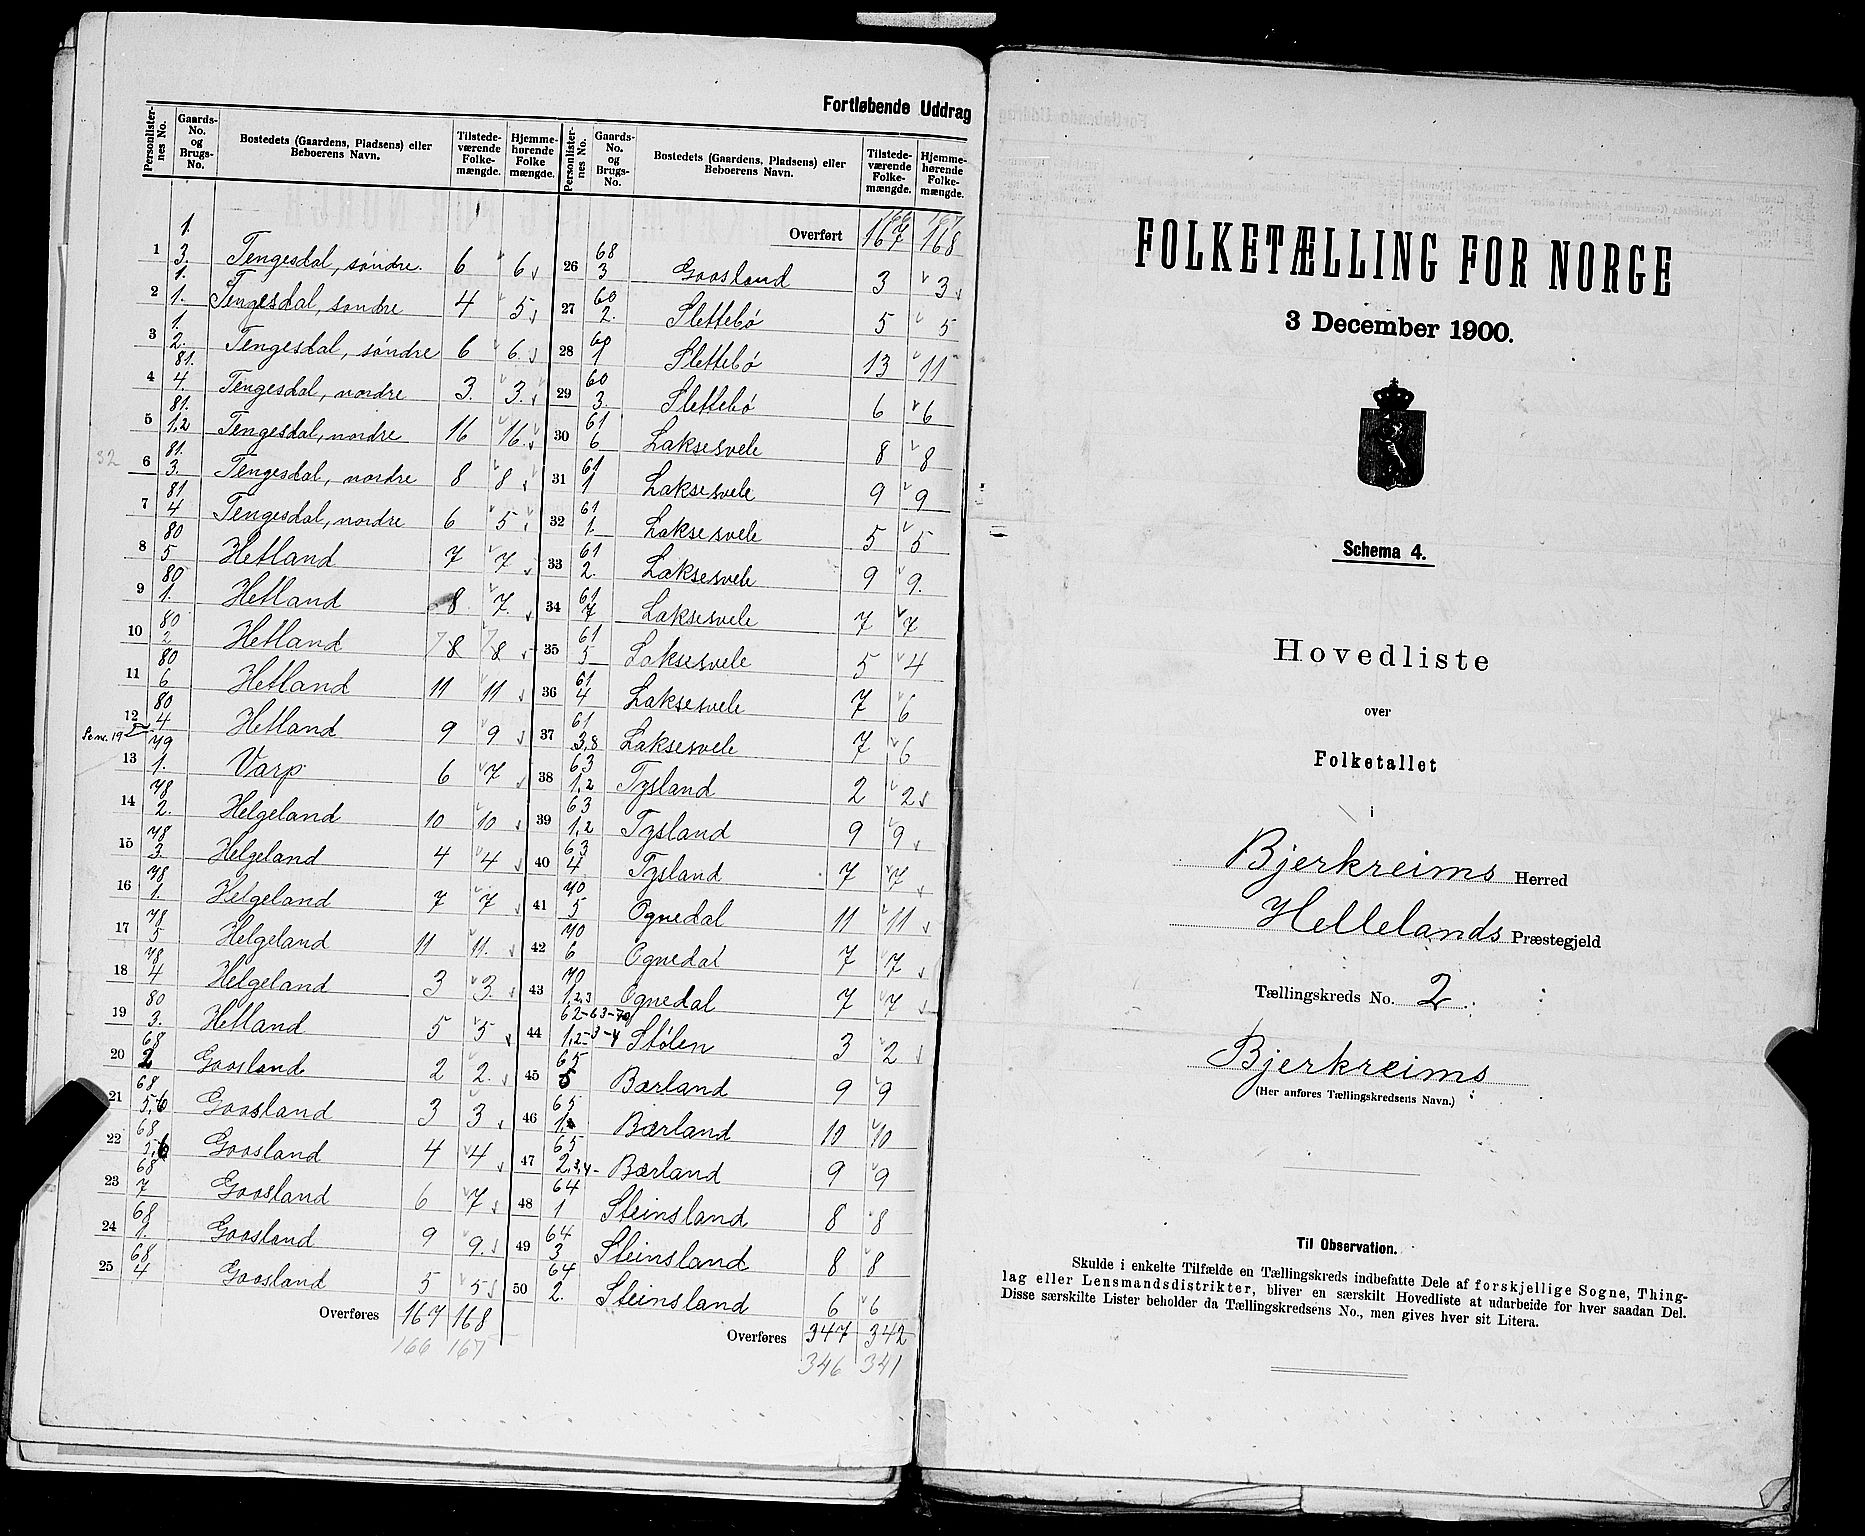 Fortløbende Uddrag
Personlister-nes No. | Gaards-No. og Brugs-No. | Bostedets (Gaardens, Pladsens) eller Beboerens Navn. | Tilstede-værende Folke-mængde. | Hjemme-hørende Folke mængde.
1 | 1. 3. | Tengesdal, søndre. | 6 | 6
2 | 1. 1. | Tengesdal, søndre | 4 | 5
3 | 1. 2. | Tengesdal, søndre | 6 | 6.
4 | 81. 4. | Tengesdal, nordre | 3. | 3.
5 | 81. 1,2 | Tengesdal, nordre | 16 | 16
32
6 | 81. 3. | Tengesdal, nordre | 8 | 8
7 | 81 4 | Tengesdal, nordre | 6 | 5
8 | 80 5 | Hetland | 7 | 7
9 | 80 1. | Hetland | 8. | 7.
10 | 80 2 | Hetland | 7 8 | 7 8
11 | 80 6 | Hetland | 11 | 11
12 | 80 4 | Hetland | 9 | 9
13 | 79 1. | Varp | 6 | 7
14 | 78 2. | Helgeland | 10 | 10
15 | 78 3. | Helgeland | 4 | 4
16 | 78 1. | Helgeland | 7 | 7
17 | 78 5 | Helgeland | 11 | 11.
18 | 78 4 | Helgeland | 3 | 3.
19 | 80 3. | Hetland | 5 | 5
20 | 68 2 | Goosland | 2 | 2.
21 | 68 5,6 | Goosland | 3 | 3
22 | 68 5,6 | Goosland | 4 | 4
23 | 68 7 | Goosland | 6 | 7
24 | 68 1. | Goosland | 9 | 9.
25 | 68 4 | Goosland | 5 | 5
Overføres 167 168
166 167
Personlister-nes No. | Gaards-No. og Brugs-No. | Bostedets (Gaardens, Pladsens) eller Beboerens Navn. | Tilstede-værende Folke-mængde. | Hjemme-hørende Folke-mængde.
166 167
Overført 167 168
26 | 68 3 | Goosland | 3 | 3
27 | 60 2. | Slettebø | 5 | 5
28 | 60 1 | Slettebø | 13 | 11
29 | 60 3. | Slettebø | 6 | 6
30 | 61 6 | Laksesvele | 8 | 8
31 | 61 1 | Laksesvele | 9 | 9
32 | 61 1. | Laksesvele | 5 | 5
33 | 61 2. | Laksesvele | 9 | 9.
34 | 61 7 | Laksesvele | 7 | 7
35 | 61 5 | Laksesvele | 5 | 4
36 | 61 4 | Laksesvele | 7 | 6
37 | 61 3,8 | Laksesvele | 7 | 6
38 | 63 1,2 | Tysland | 2 | 2
39 | 63 1,2 | Tysland | 9 | 9
40 | 63 4. | Tysland | 7 | 7
41 | 70 5 | Ognedal | 11 | 11
42 | 70 6 | Ognedal | 7 | 7
43 | 70 1,2,3 | Ognedal | 7 | 7
44 | 62-63-70 1,2-3-4 | Stølen | 3 | 2
45 | 65 5 | Bærland | 9 | 9
46 | 65 1. | Bærland | 10 | 10
47 | 65 2,3,4- | Bærland | 9 | 9
48 | 64 1 | Steinsland | 8 | 8
49 | 64 3 | Steinsland | 8 | 8
50 | 64 2. | Steinsland | 6 | 6
Overføres 347 342
346 341
FOLKETÆLLING FOR NORGE
3 December 1900.
Schema 4.
Hovedliste
over
Folketallet
i
Bjerkreims Herred
Hellelands Præstegjeld
Tællingskreds No. 2.
Bjerkreims
(Her anføres Tællingskredsens Navn.)
Til Observation.
Skulde i enkelte Tilfælde en Tællingskreds indbefatte Dele af forskjellige Sogne, Thing-
lag eller Lensmandsdistrikter, bliver en særskilt Hovedliste at udarbeide for hver saadan Del.
Disse særskilte Lister beholder da Tællingskredsens No., men gives hver sit Litera.